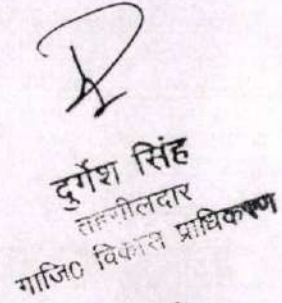 दुर्गेश सिंह
तहसीलदार
गाजि0 विकास प्राधिकरण